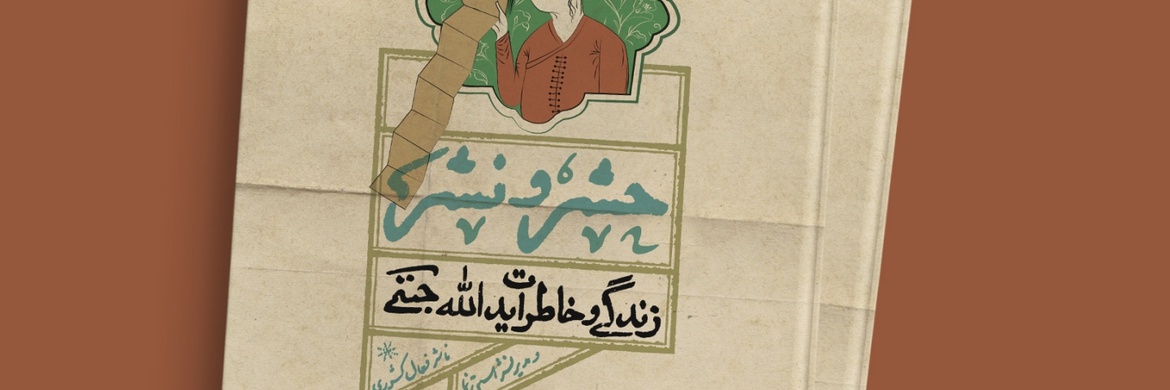 حشر و نشر
زندگی و خاطرات یدالله جنتی
و مدیر نشر
ناشر فعال کشوری